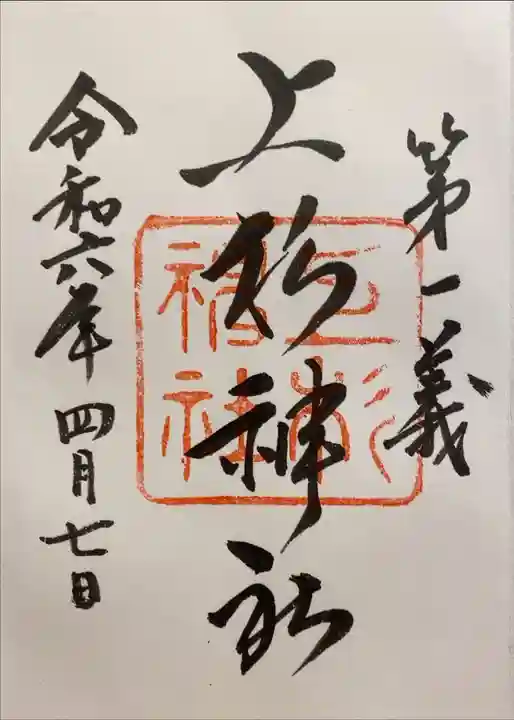 第一義
上杉神社
令和六年 四月七日